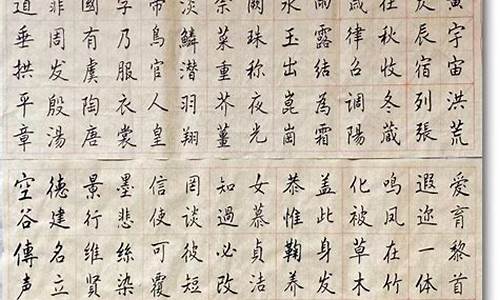 黄宇宙洪荒
昃辰宿列張
往秋收冬藏
歲律吕調陽
雨露結為霜
水玉出崑崗
闕珠称夜光
柰菜重芥薑
淡鱗潜羽翔
帝鳥官人皇
字乃服衣裳
國有虞陶唐
罪周发殷湯
道垂拱平章
愛育黎首
遐迩一体
鳴凤在竹
化被草木
盖此身发
恭惟鞠养
女慕貞洁
知過必改
罔談彼短
信使可覆
墨悲絲染
景行维賢
德建名立
空谷傳声